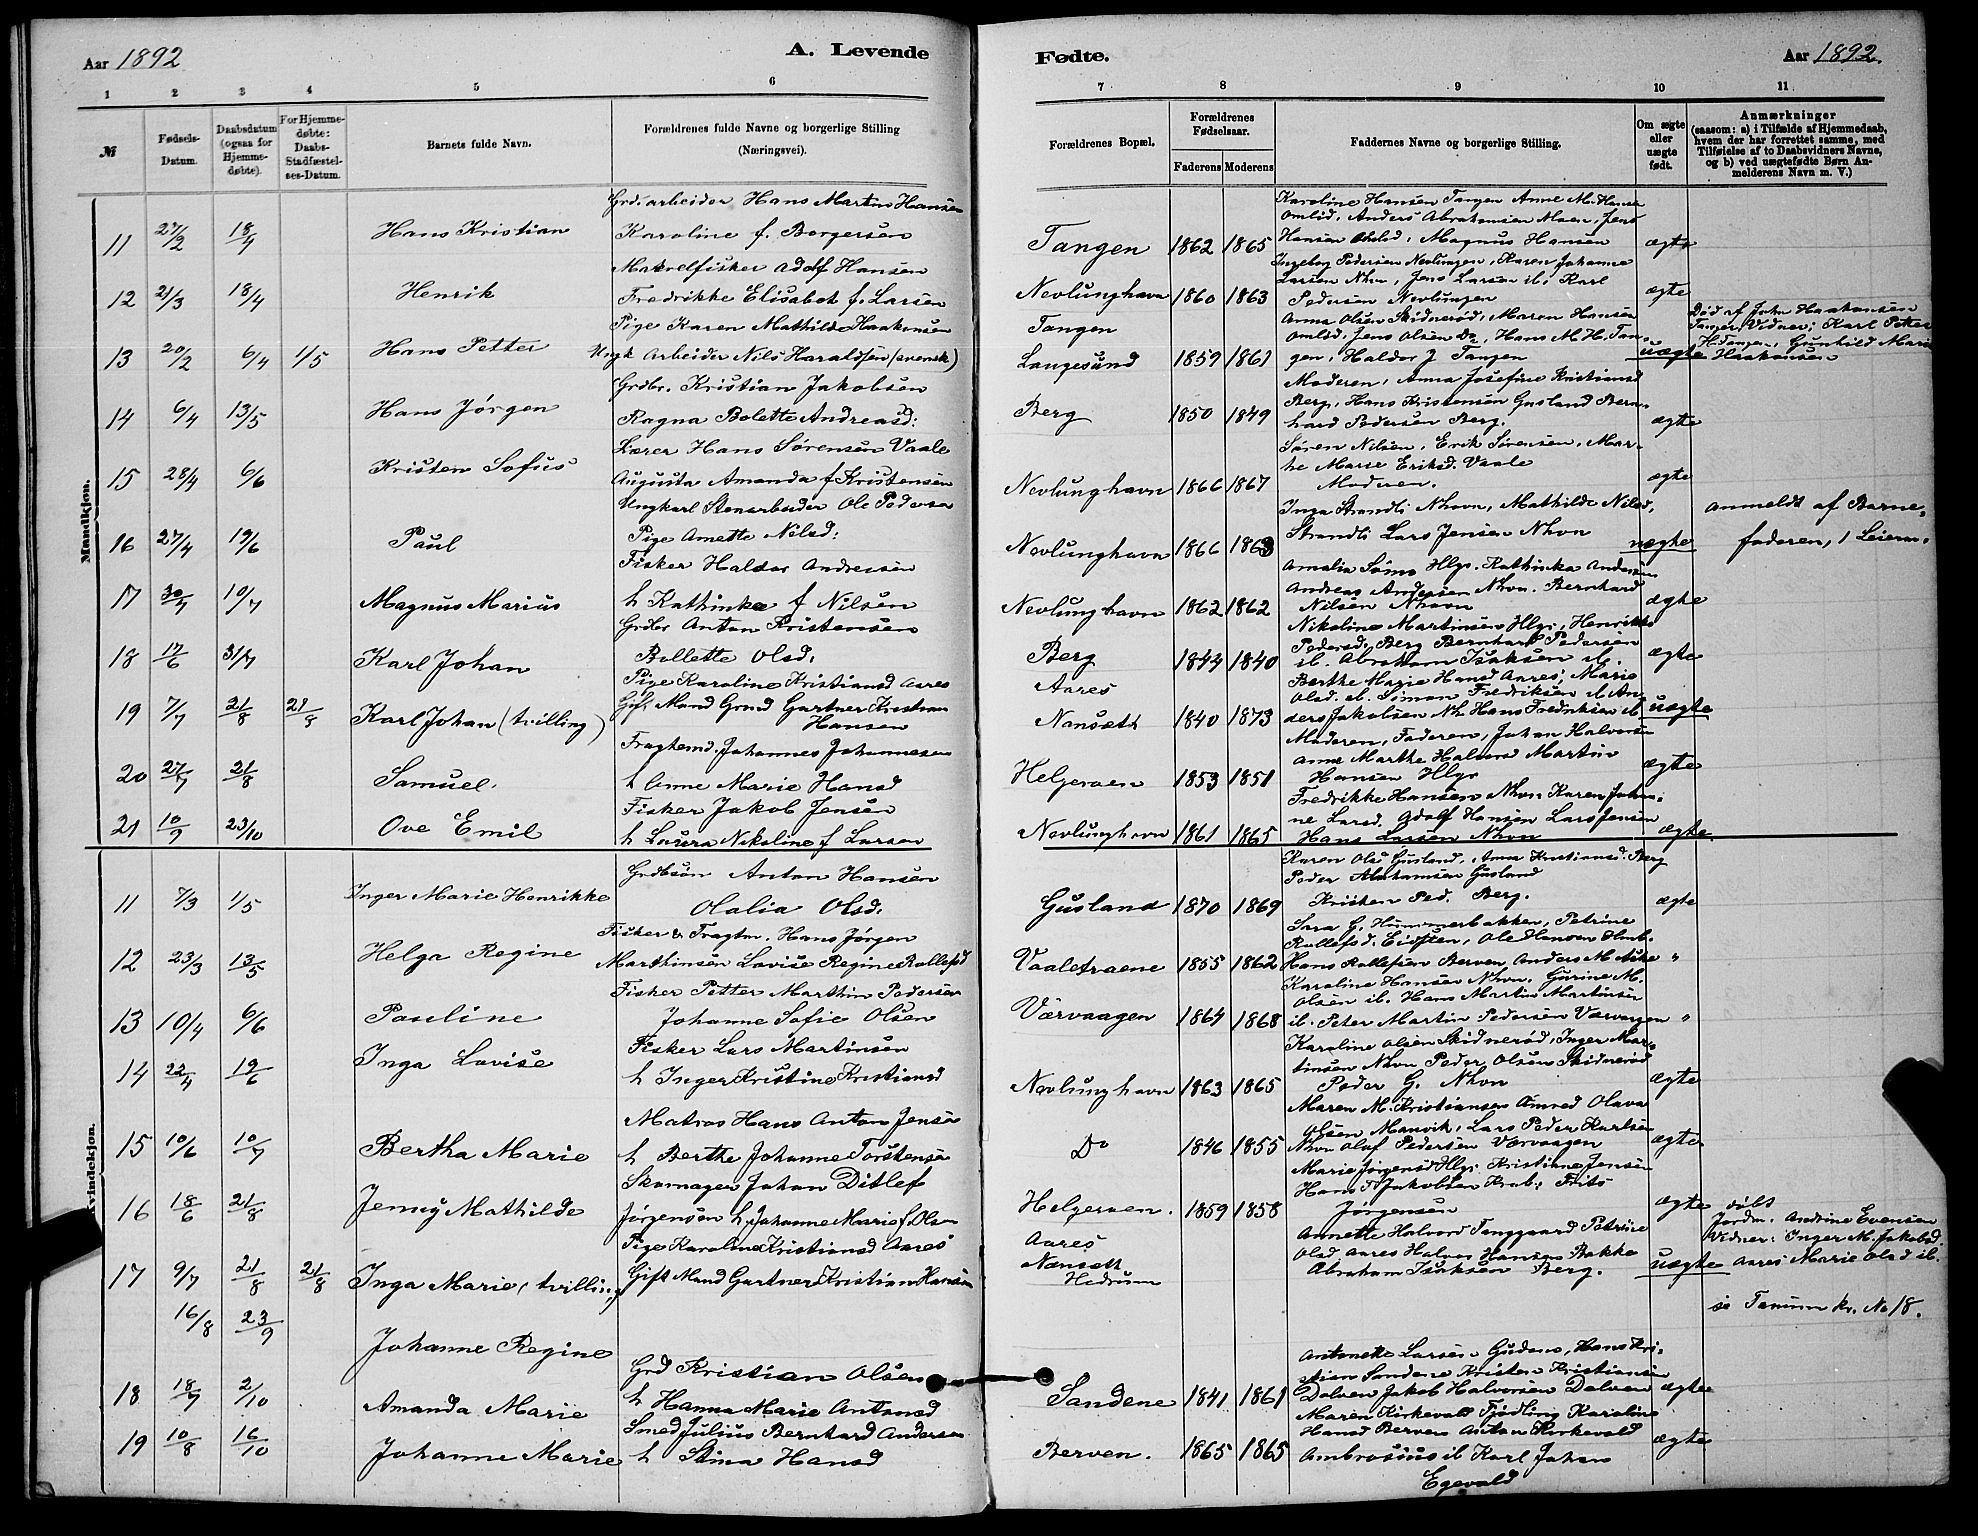 Aar 1892
A. Levende
1 2 3 4 5 6
№
Fødsels-Datum.
Daabsdatum (ogsaa for Hjemmedøbte).
For Hjemmedøbte: Daabs-Stadfæstelses-Datum.
Barnets fulde Navn.
Forældrenes fulde Navne og borgerlige Stilling (Næringsvei).
Mandkjøn.
Grdsarbeider Hans Martin Hansen
11 27/2 18/4 Hans Kristian Karoline f. Borgersen
Makrelfisker Adolf Hansen
12 21/3 18/4 Henrik Fredrikke Elisabet f. Larsen
Pige Karen Mathilde Haakonsen
13 20/2 6/4 1/5 Hans Petter Ungk Arbeider Nils Haraldsen (svensk)
Grdbr. Kristian Jakobsen
14 6/4 13/5 Hans Jørgen Ragna Bolette Andreasd:
Lærer Hans Sørensen Vaale
15 28/4 6/6 Kristen Sofus Augusta Amanda f Kristensen
Ungkarl Stenarbeider Ole Pedersen
16 27/4 19/6 Paul Pige Anette Nilsd:
Fisker Haldor Andersen
17 30/4 10/7 Magnus Marius h Kathinka f Nilsen
Grdbr Anton Kristensen
18 17/6 31/7 Karl Johan Bollette Olsd.
Pige Karoline Kristiansd Aares
19 7/7 21/8 21/8 Karl Johan (tvilling) Gift Mand Grnd Gartner Kristian Hansen
Fragtemd. Johannes Johannesen
20 27/7 21/8 Samuel. h Anne Marie Hansd
Fisker Jakob Jensen
21 10/9 23/10 Ove Emil h Laura Nikoline f Larsen
Kvindekjøn.
Grdbsøn Anton Hansen
11 7/3 1/5 Inger Marie Henrikke Olalia Olsd.
Fisker & Fragtm. Hans Jørgen
12 23/3 13/5 Helga Regine Marthinsen Lovise Regine Rollefsd
Fisker Petter Marthin Pedersen
13 10/4 6/6 Pauline Johanne Sofie Olsen
Fisker Lars Martinsen
14 22/4 19/6 Inga Lovise h Inger Kristine Kristiansd
Matros Hans Anton Jensen
15 10/6 10/7 Bertha Marie h Berthe Johanne Torstensen
Skomager Johan Ditlef
16 18/6 21/8 Jenny Mathilde Jørgensen h Johanne Marie f. Olsen
Pige Karoline Kristiansd Aares
17 9/7 21/8 21/8 Inga Marie (tvilling) Gift Mand Gartner Kristian Hansen
16/8 23/9 Johanne Regine
Grd Kristian Olsen
18 18/7 2/10 Amanda Marie h Hanna Marie Antonsd
Smed Julius Bernhard Andersen
19 10/8 16/10 Johanne Marie h Stina Hansd
Fødte.
Aar 1892.
7 8 9 10 11
Forældrenes Bopæl.
Forældrenes Fødselsaar.
Faderens Moderens
Faddernes Navne og borgerlige Stilling.
Om ægte eller uægte født.
Anmærkninger
(saasom: a) i Tilfælde af Hjemmedaab, hvem der har forrettet samme, med Tilføielse af to Daabsvidners Navne, og b) ved uægtefødte Børn Anmelderens Navn m. V.)
Karoline Hansen Tangen Anne M. Hansen
Omlid, Anders Abrahamsen Moen, Jens
Tangen 1862 1865 Hansen Omlid, Magnus Hansen ægte
Ingeborg Pedersen Nevlungen, Karen Johanne
Nevlunghavn 1860 1863 Larsen Nhvn, Jens Larsen ib, Karl ægte
Pedersen Nevlungen
Tangen Anna Olsen Skidnerød, Maren Hansen
Omlid, Jens Olsen Do, Hans M. H. Tan-
Langesund 1859 1861 gen, Haldor J Tangen uægte
Død af John Haakonsen
Tangen, Vidner: Karl Petter
H. Tangen, Gunhild Marie
Haakonsen
Moderen, Anna Josefine Kristiansd
Berg 1850 1849 Berg, Hans Kristensen Gusland Bern- ægte
hard Pedersen Berg.
Søren Nilsen, Erik Sørensen, Mar-
the Marie Eriksd. Vaale
Nevlunghavn 1866 1867 Moderen. ægte
Inga Strandli Nhvn, Mathilde Nilsd,
Nevlunghavn 1866 1863 Strandli Lars Jensen Nhvn uægte
Anmeldt af Barne-
faderen, i Leierm.
Amalia Sømo Hlgr. Kathinka Andersen
Nevlunghavn 1862 1862 Andreas Andersen Nhvn. Bernhard ægte
Nilsen Nhavn
Nikoline Martinsen Hlgr, Henrikke
Berg 1844 1840 Pedersd. Berg Bernhard Pedersen ægte
ib. Abraham Isaksen ib.
Aares Berthe Marie Hansd Aares, Marie
Olsd. ib. Simon Fredriksen ib An-
Nanseth 1840 1873 ders Jakobsen Nh Hans Fredriksen ib uægte
Moderen, Faderen, Johan Halvorsen
Helgeroen 1853 1851 Anne Marthe Halvorsd Martin ægte
Hansen Hlgr
Fredrikke Hansen Nhvn Karen Johan-
ne Larsd. Adolf Hansen Lars Jensen
Nevlunghavn 1861 1865 Hans Larsen Nhvn ægte
Karen Olsd Gusland, Anna Kristiansd. Berg
Peder Abrahamsen Gusland
Gusland 1870 1869 Kristen Ped. Berg. ægte
Sara G. Hummerbakken, Petrine
Rollefsd. Eidsten, Ole Hansen Hmb.
Vaaletraene 1855 1862 Hans Rollefsen Berven Anders M Aske "
Karoline Hansen Nhvn, Gurine M.
Olsen ib. Hans Martin Martinsen
Værvaagen 1864 1868 ib. Peter Martin Pedersen Værvaagen "
Karoline Olsen Skidnerød, Inger Mar-
tinsen Nhvn Peder Olsen Skidnerød
Nevlunghavn 1863 1865 Peder G. Nhvn ægte
Maren M. Kristiansen Omred Olava
Olsen Manvik, Lars Peder Karlsen
Do 1846 1855 Nhvn Olaf Pedersen Værvaagen ægte
Marie Jørgensd Hlgr. Kristiane Jensen
Hans J Jakobsen Krab. Frits
Helgeroen. 1859 1858 Jørgensen ægte
Aares Annette Halvord Tanggaard Petrine
Nanseth Olsd Aares Halvor Hansen Bakke
Hedrum Abraham Isaksen Berg. uægte
døbt
Jordm. Andrine Evensen
Vidner: Inger M. Jakobsd.
Aares Marie Olsd ib.
se Tanum kr. No 18.
Antonette Larsen Gudem, Hans Kri-
stian Sandene Kristen Kristiansen
Sandene 1841 1861 Dolven Jakob Halvorsen Dolven ægte
Maren Kirkevold Fjødling Karoline
Hansd Berven Anton Kirkevold
Berven. 1865 1865 Ambrosius ib Karl Johan ægte
Egevald